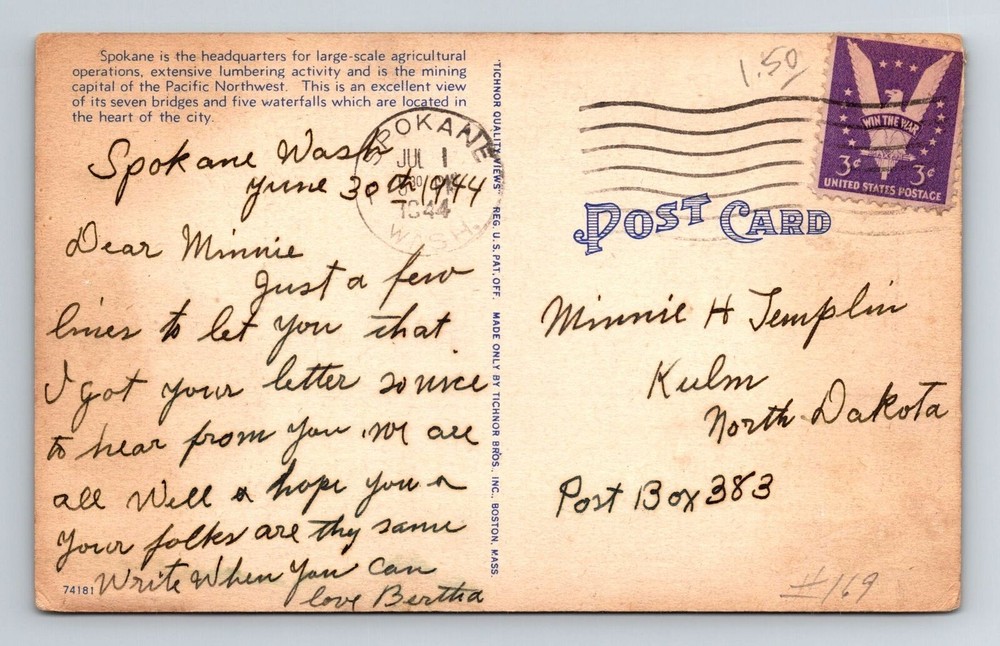 Spokane is the headquarters for large-scale agricultural
operations, extensive lumbering activity and is the mining
capital of the Pacific Northwest. This is an excellent view
of its seven bridges and five waterfalls which are located in
the heart of the city.
Spokane Wash
June 30th 1944
Dear Minnie
Just a few
lines to let you that
I got your letter so nice
to hear from you. we are
all well & hope you &
your folks are thy same
Write When you can
love Bertha
74181
SPOKANE
JUL 1
1944
WASH.
"TICHNOR QUALITY VIEWS" REG. U.S. PAT. OFF. MADE ONLY BY TICHNOR BROS., INC., BOSTON, MASS.
1.50
WIN THE WAR
3¢ 3¢
UNITED STATES POSTAGE
POST CARD
Minnie H Templin
Kulm
North Dakota
Post Box 383
#169